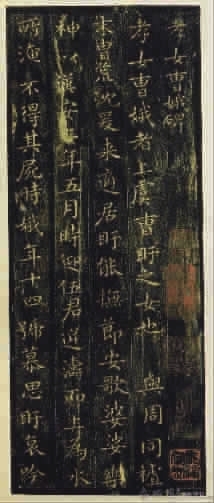 孝女曹娥碑
孝女曹娥者上虞曹盱之女也其先與周同祖
末胄荒沈爰来適居盱能撫節安歌婆娑樂
神以漢安二年五月時迎伍君逆濤而上為水
所淹不得其屍時娥年十四號慕思盱哀吟